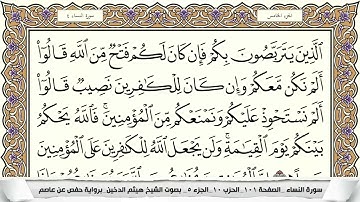 الجزء الخامس
سورة النساء ٤
ٱلَّذِينَ يَتَرَبَّصُونَ بِكُمْ فَإِن كَانَ لَكُمْ فَتْحٌ مِّنَ ٱللَّهِ قَالُوٓاْ
أَلَمْ نَكُن مَّعَكُمْ وَإِن كَانَ لِلْكَٰفِرِينَ نَصِيبٌ قَالُوٓاْ
أَلَمْ نَسْتَحْوِذْ عَلَيْكُمْ وَنَمْنَعْكُم مِّنَ ٱلْمُؤْمِنِينَ ۚ فَٱللَّهُ يَحْكُمُ
بَيْنَكُمْ يَوْمَ ٱلْقِيَٰمَةِ ۗ وَلَن يَجْعَلَ ٱللَّهُ لِلْكَٰفِرِينَ عَلَى ٱلْمُؤْمِنِينَ
سورة النساء _ الصفحة ١٠١ _ الحزب ١٠ _ الجزء ٥ _ بصوت الشيخ هيثم الدخين _ برواية حفص عن عاصم